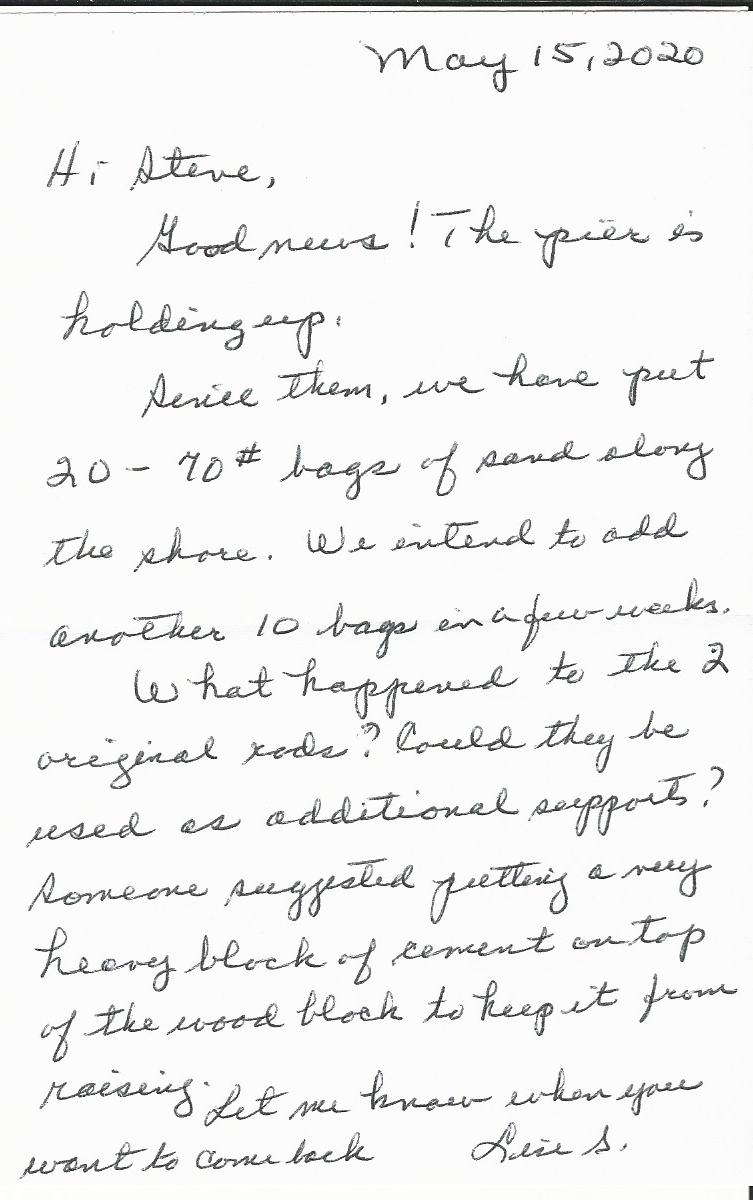 May 15, 2020
Hi Steve,
Good news! The pier is
holding up.
Since them, we have put
20 - 70# bags of sand along
the shore. We intend to add
another 10 bags in a few weeks.
What happened to the 2
original rods? Could they be
used as additional supports?
Someone suggested putting a very
heavy block of cement on top
of the wood block to keep it from
raising. Let me know when you
want to come back Lise S.